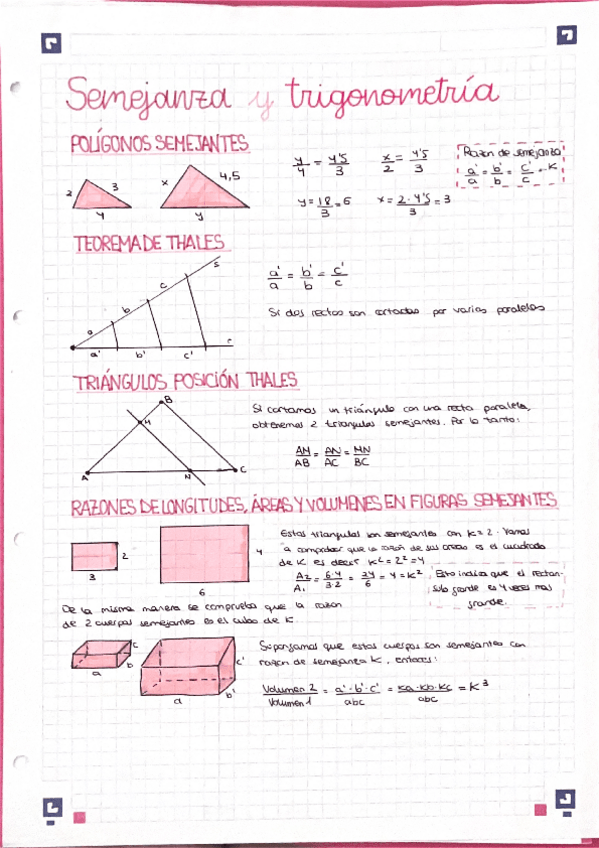 Semejanza y trigonometría
POLÍGONOS SEMEJANTES
2 3 4
x 4,5 y
y/4 = 4'5/3
x/2 = 4'5/3
y = 18/3 = 6
x = 2·4'5/3 = 3
Razón de semejanza
a'/a = b'/b = c'/c = K
TEOREMA DE THALES
a b c s
a' b' c' r
a'/a = b'/b = c'/c
Si dos rectas son cortadas por varias paralelas
TRIÁNGULOS POSICIÓN THALES
B
M
A N C
Si cortamos un triángulo con una recta paralela,
obtenemos 2 triángulos semejantes. Por lo tanto:
AM/AB = AN/AC = MN/BC
RAZONES DE LONGITUDES, ÁREAS Y VOLUMENES EN FIGURAS SEMEJANTES
2
3
4
6
Estos triangulos son semejantes con K=2. Vamos
a comprobar que la razón de sus areas es el cuadrado
de K es decir K² = 2² = 4
A₂/A₁ = 6·4/3·2 = 24/6 = 4 = K²
Esto indica que el rectan-
gulo grande es 4 veces mas
grande.
De la misma manera se comprueba que la razon
de 2 cuerpos semejantes es el cubo de K.
a b c
a b' c'
Supongamos que estos cuerpos son semejantes con
razon de semejanza K, entonces:
Volumen 2/Volumen 1 = a'·b'·c'/abc = Ka·Kb·Kc/abc = K³